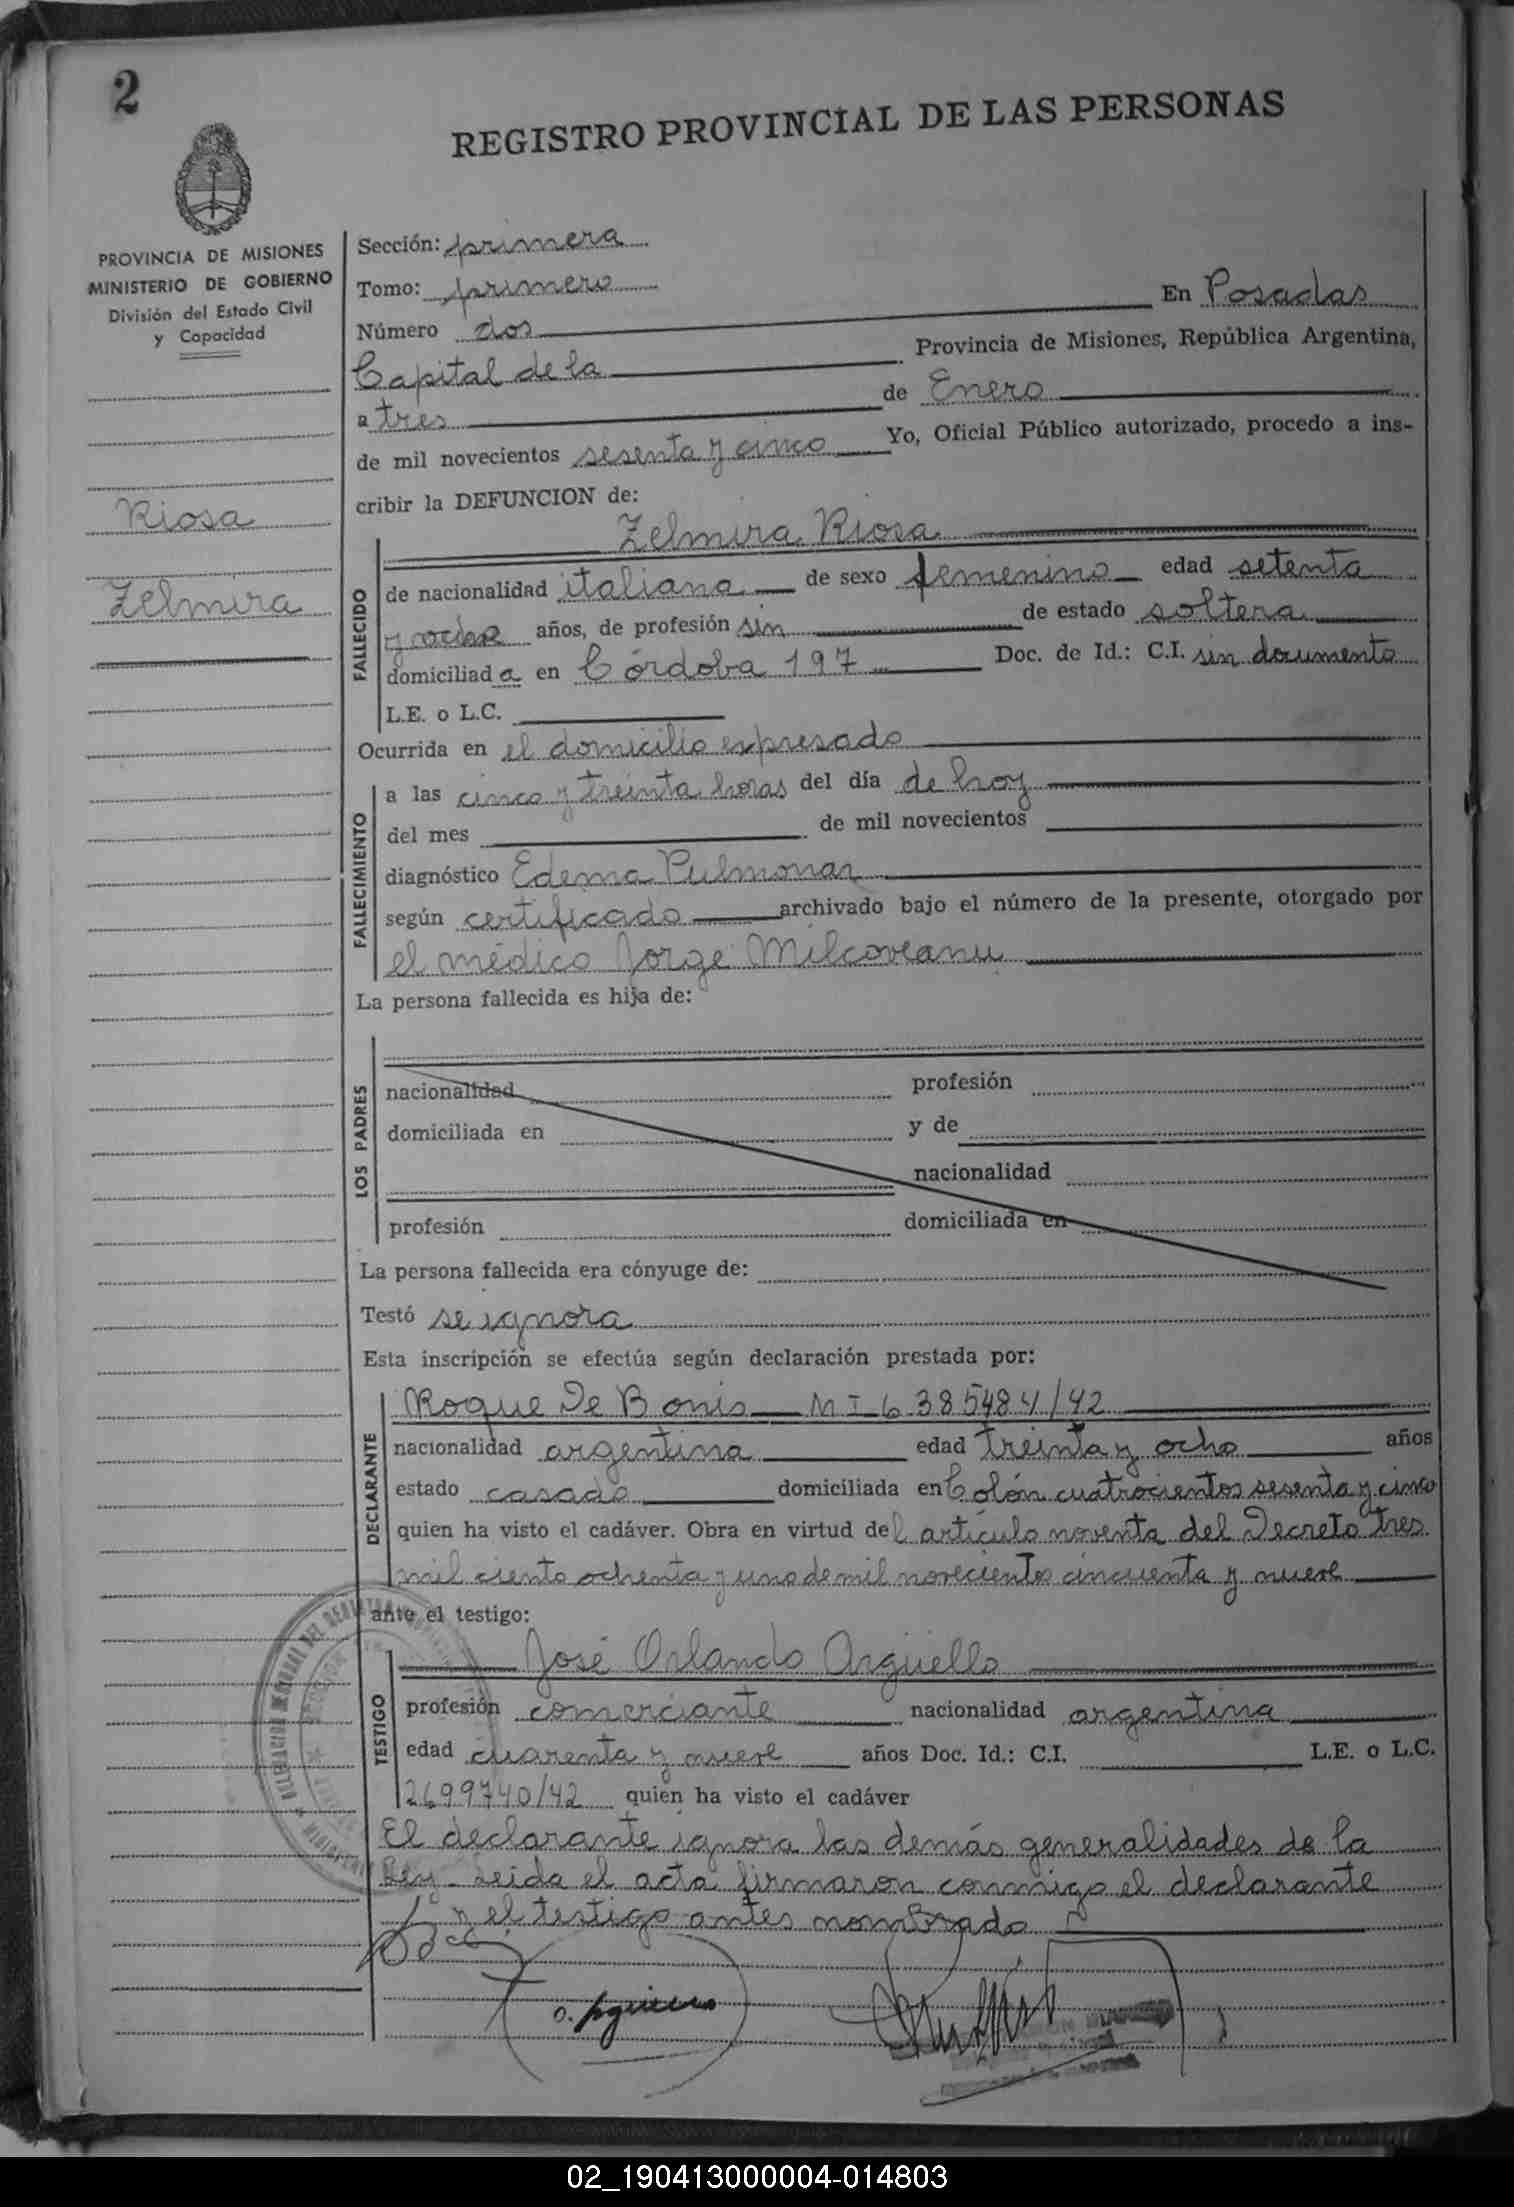 2
REGISTRO PROVINCIAL DE LAS PERSONAS
PROVINCIA DE MISIONES
MINISTERIO DE GOBIERNO
División del Estado Civil
y Capacidad
Riosa
Zelmira
Sección: primera
Tomo: primero
Número dos En Posadas
Capital de la Provincia de Misiones, República Argentina,
a tres de Enero
de mil novecientos sesenta y cinco Yo, Oficial Público autorizado, procedo a ins-
cribir la DEFUNCION de:
Zelmira Riosa
FALLECIDO
de nacionalidad italiana de sexo femenino edad setenta
y años, de profesión sin de estado soltera
domiciliad a en Córdoba 197 Doc. de Id.: C.I. sin documento
L.E. o L.C.
Ocurrida en el domicilio expresado
FALLECIMIENTO
a las cinco y treinta horas del día de hoy
del mes de mil novecientos
diagnóstico Edema Pulmonar
según certificado archivado bajo el número de la presente, otorgado por
el médico Jorge Milcoveanu
La persona fallecida es hija de:
LOS PADRES
nacionalidad profesión
domiciliada en y de
nacionalidad
profesión domiciliada en
La persona fallecida era cónyuge de:
Testó se ignora
Esta inscripción se efectúa según declaración prestada por:
DECLARANTE
Roque De Bonis MI 6385484/42
nacionalidad argentina edad treinta y ocho años
estado casado domiciliada en Colón cuatrocientos sesenta y cinco
quien ha visto el cadáver. Obra en virtud del artículo noventa del Decreto tres
mil ciento ochenta y uno de mil novecientos cincuenta y nueve
ante el testigo:
José Orlando Argüello
TESTIGO
profesión comerciante nacionalidad argentina
edad cuarenta y nueve años Doc. Id.: C.I. L.E. o L.C.
2699740/42 quien ha visto el cadáver
El declarante ignora las demás generalidades de la
Ley. Leida el acta firmaron conmigo el declarante
y el testigo antes nombrado
02_190413000004-014803